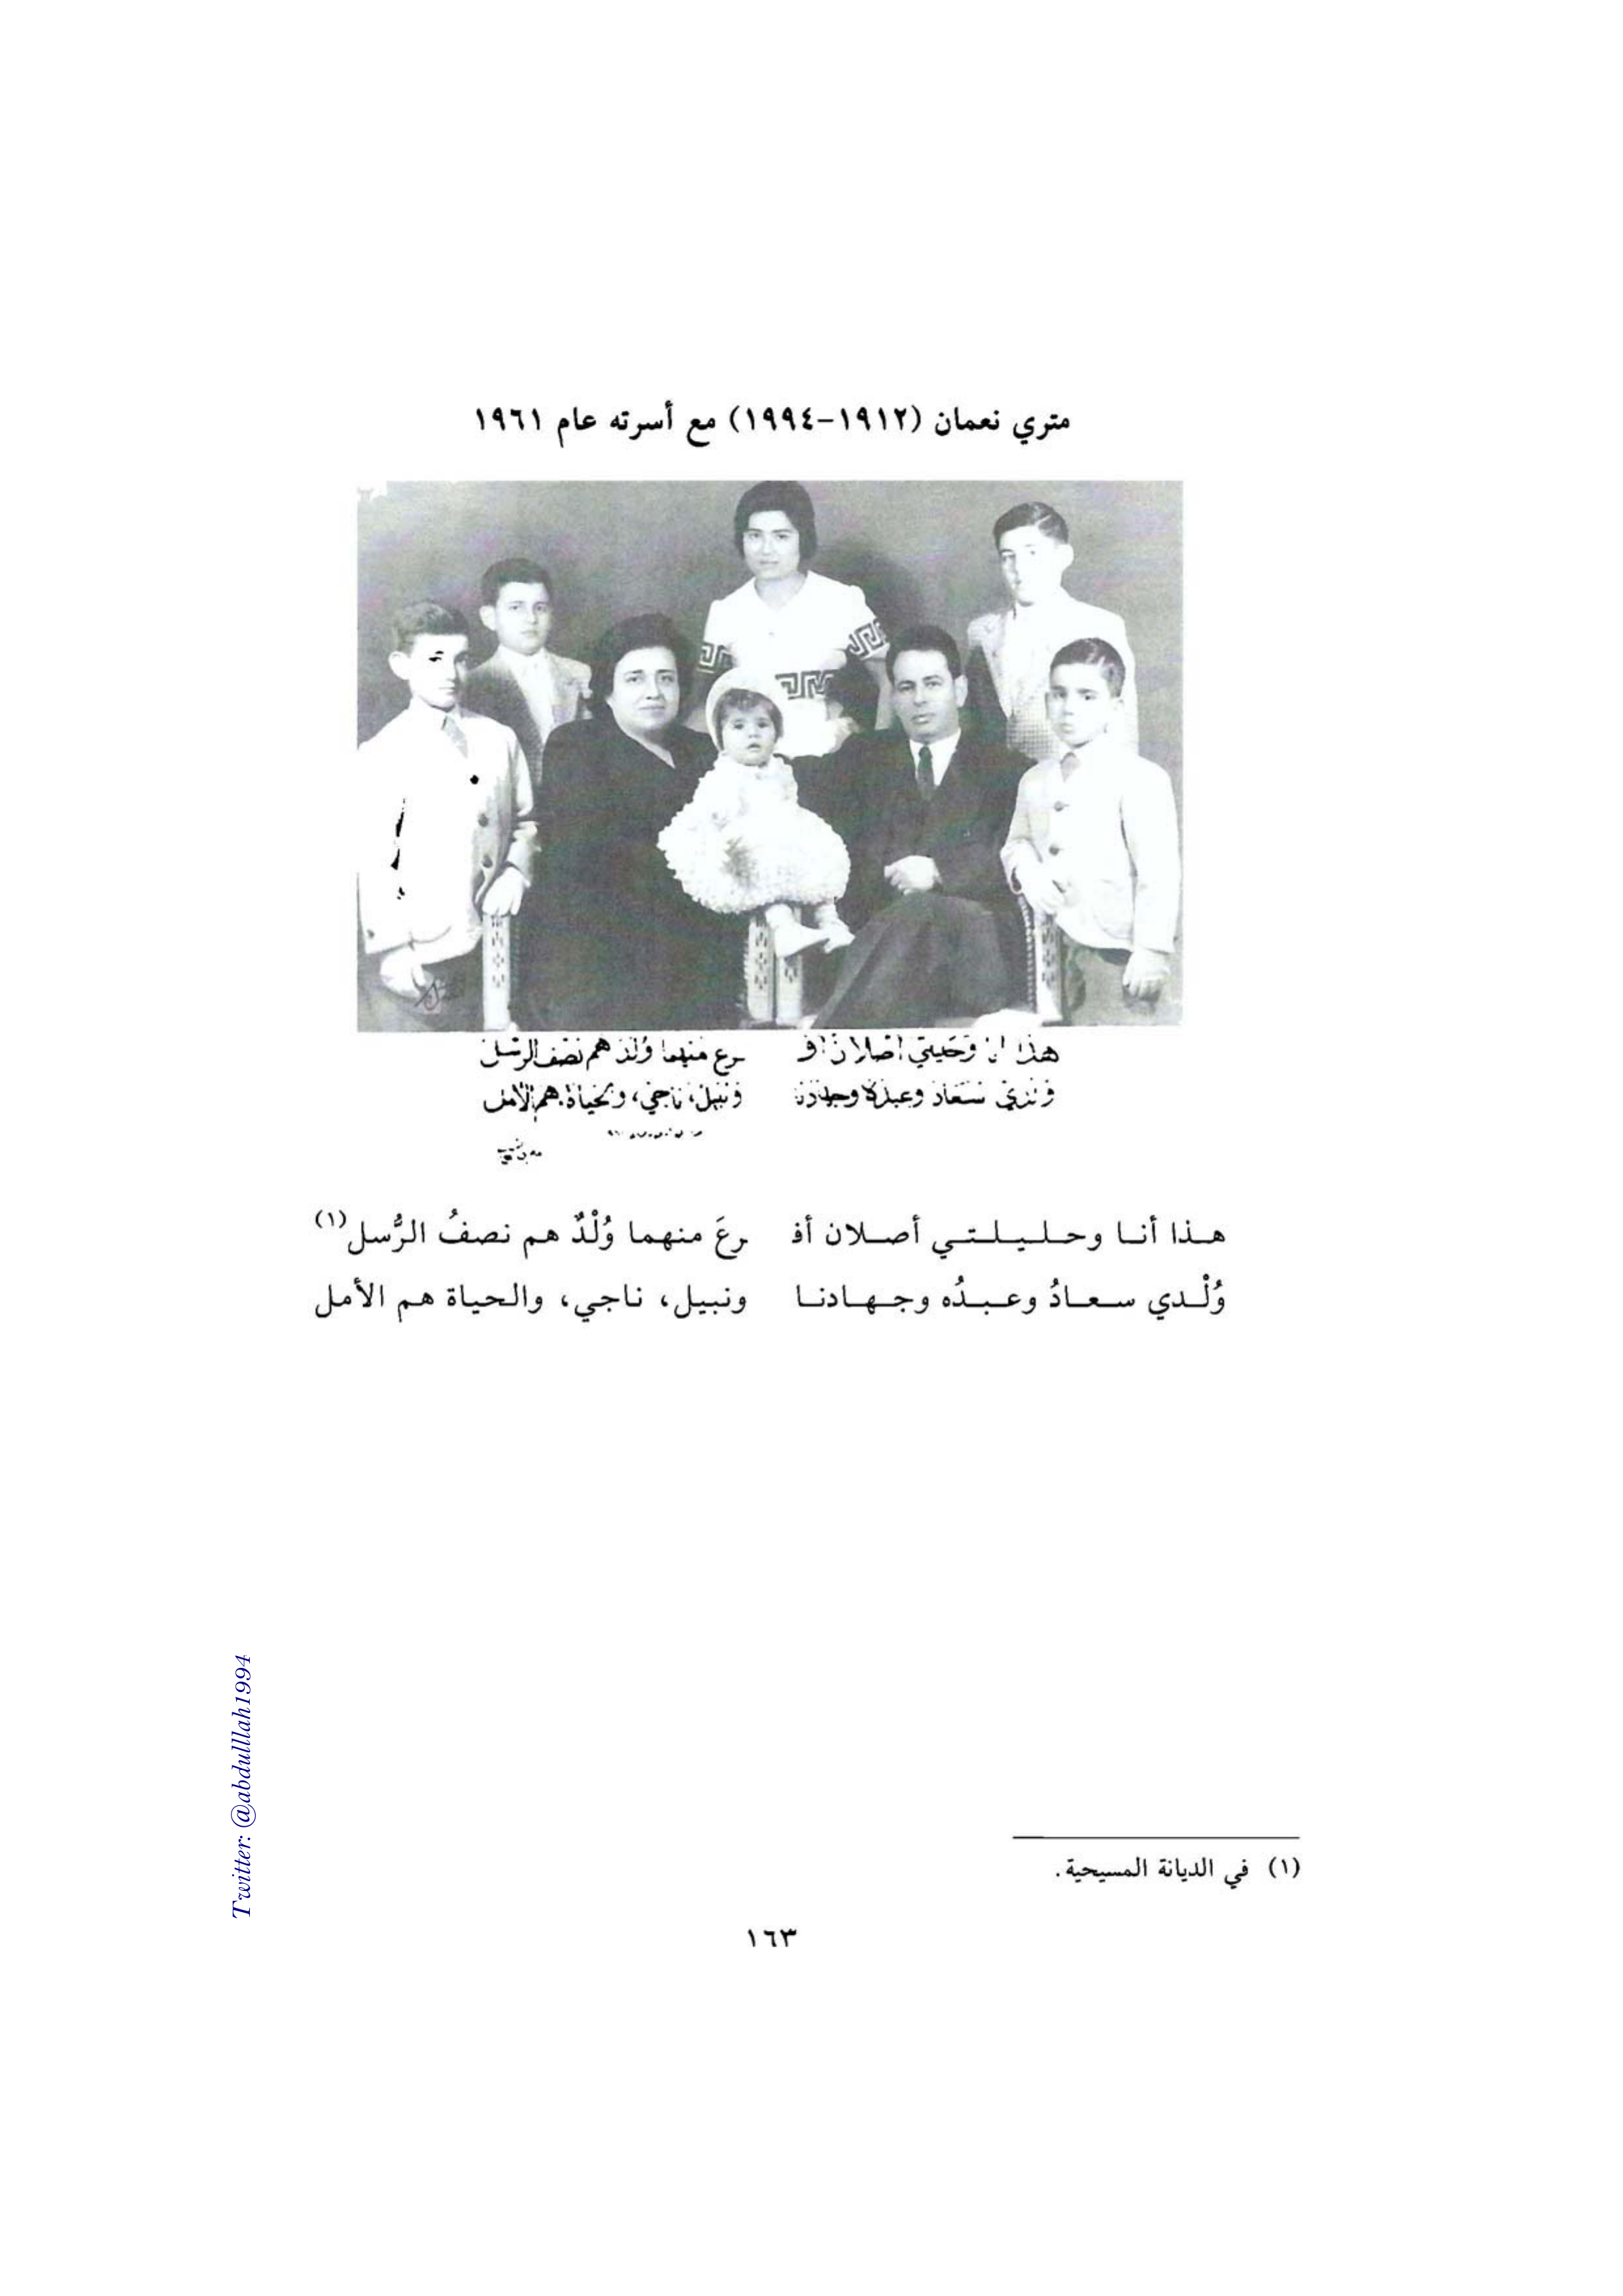 متري نعمان (١٩١٢-١٩٩٤) مع أسرته عام ١٩٦١
هذا انا وحليلتي اصلان اف رع منهما ولد هم نصف الرسل
ولدي سعاد وعبده وجهادنا ونبيل، ناجي، والحياة هم الأمل
هذا أنا وحليلتي أصلان أفـ ـرعَ منهما وُلْدٌ هم نصفُ الرُّسل(١)
وُلْدي سعادُ وعبدُه وجهادنا ونبيل، ناجي، والحياة هم الأمل
(١) في الديانة المسيحية.
١٦٣
Twitter: @abdulllah1994